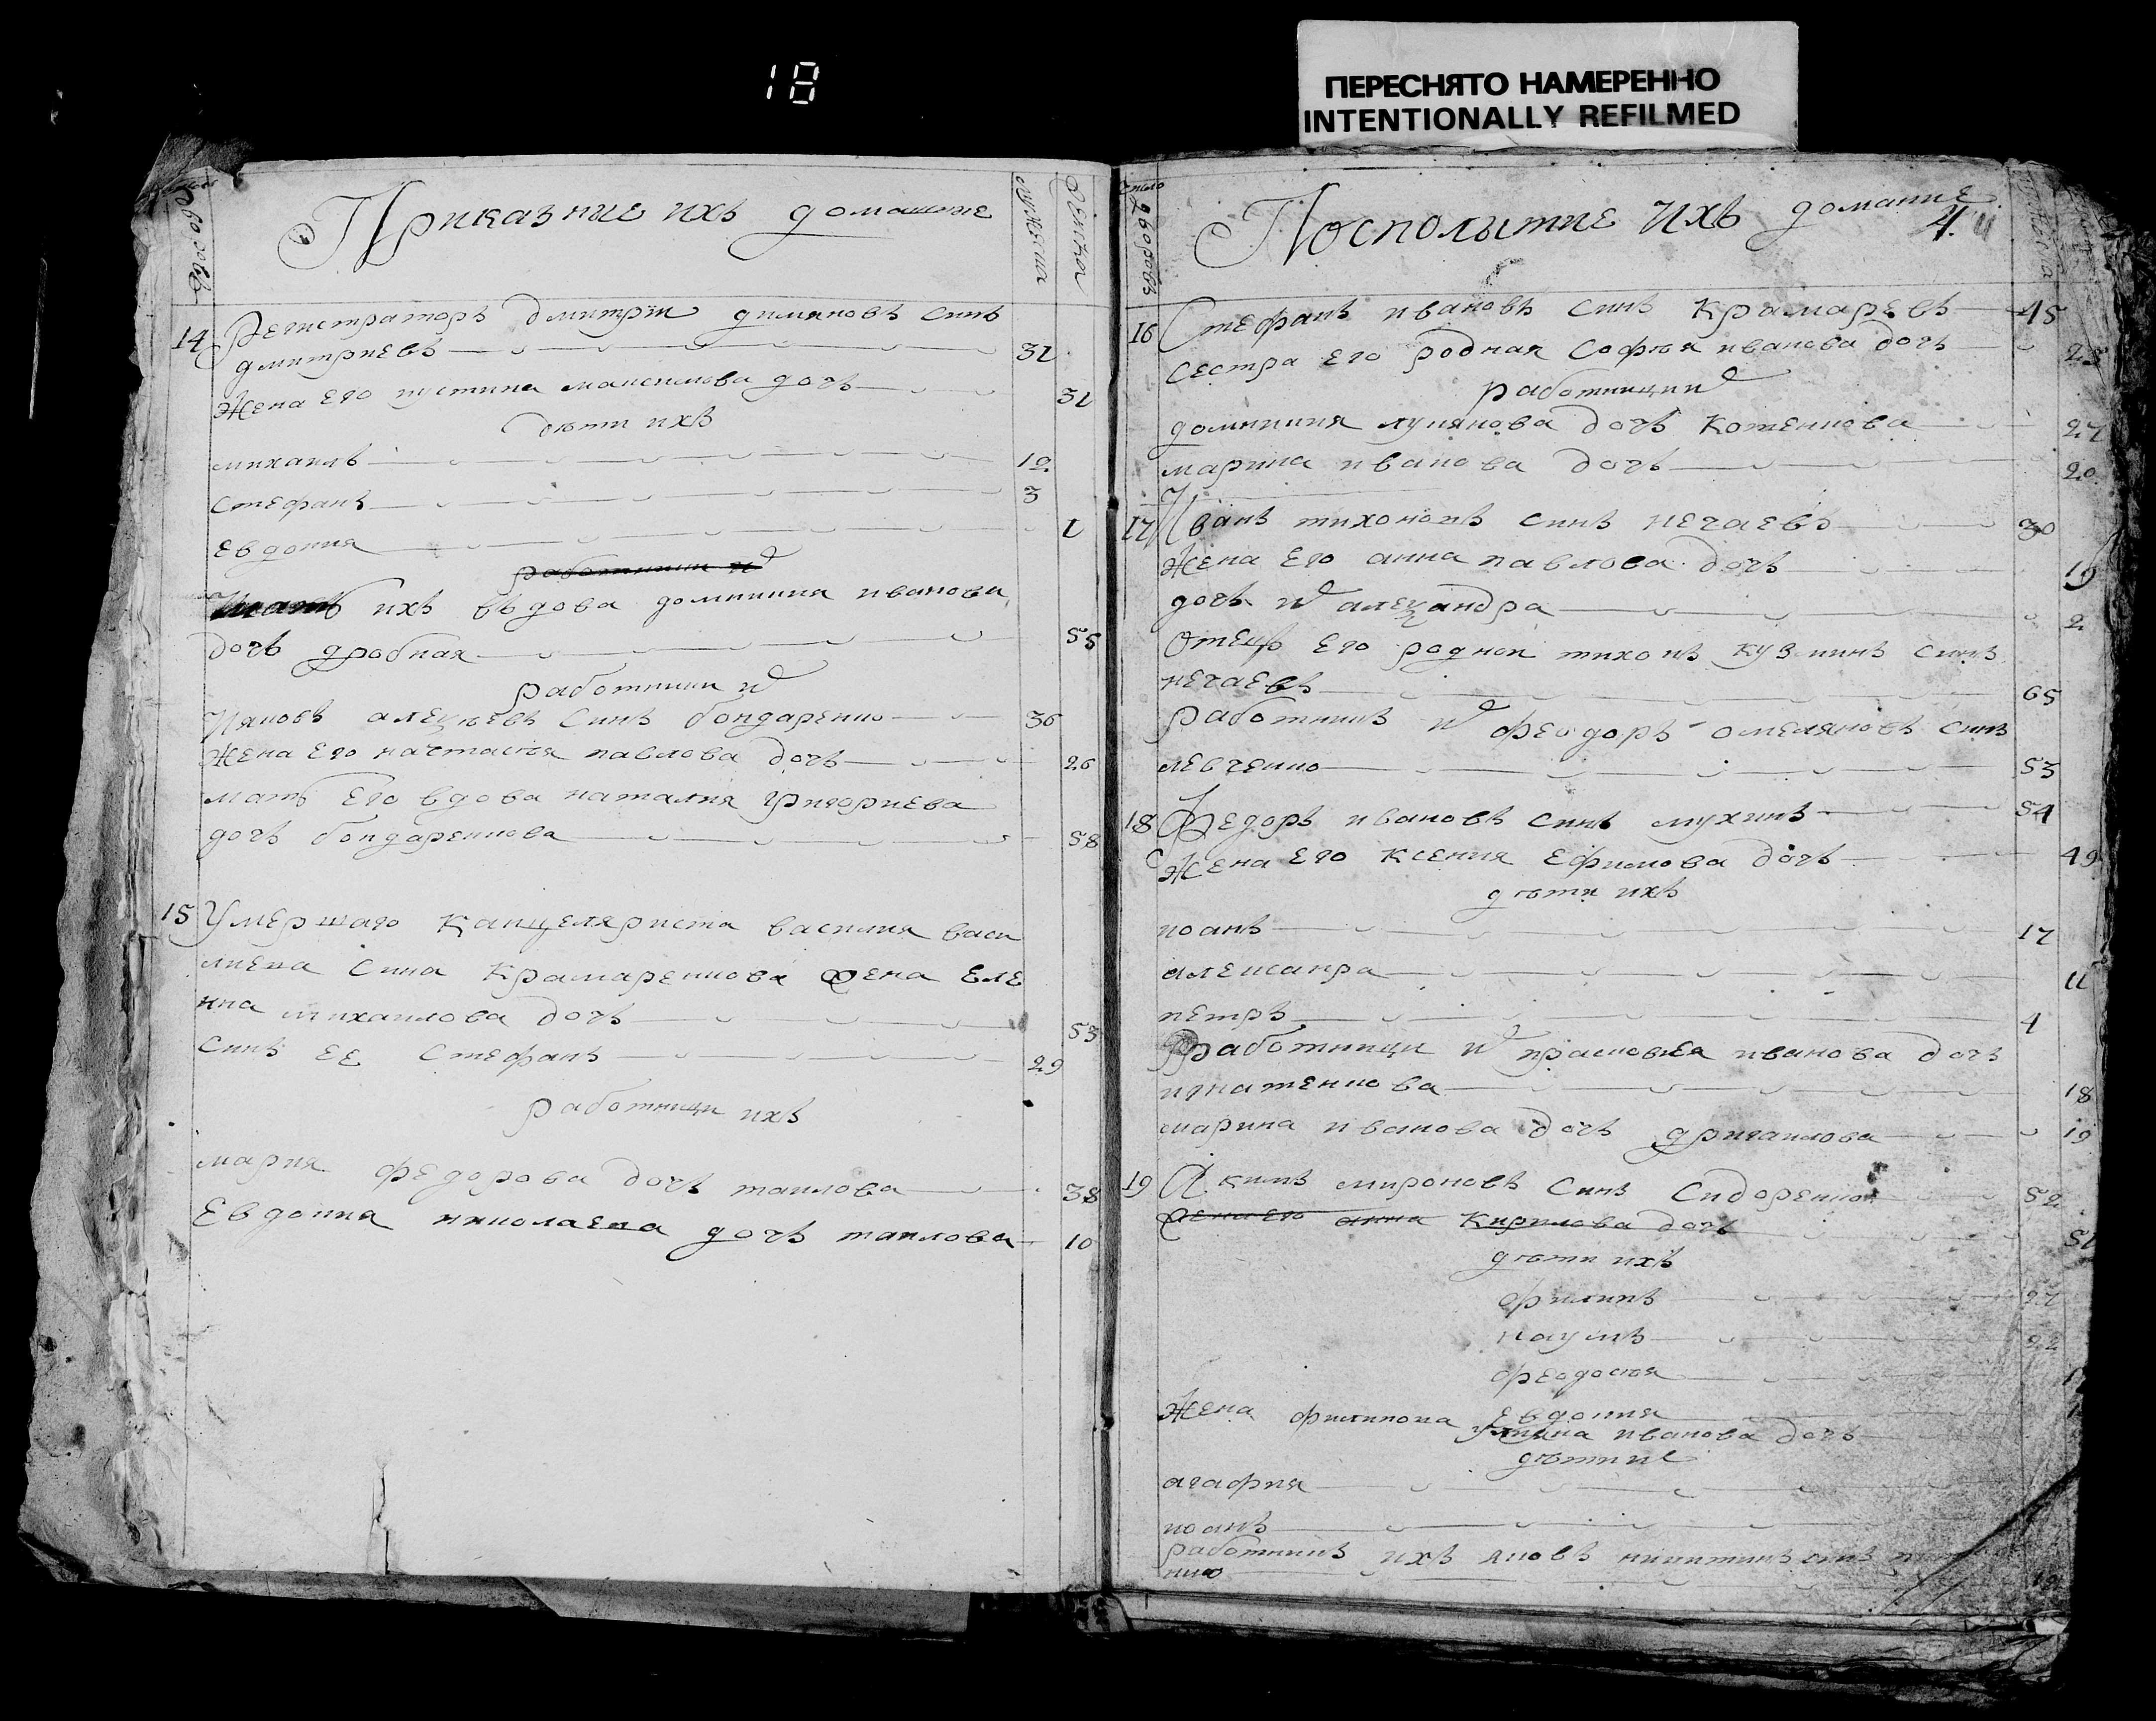 18
ПЕРЕСНЯТО НАМЕРЕННО
INTENTIONALLY REFILMED
дворовъ
Приказние ихъ домашние
мужеска
женска
14 Регистраторъ дмитрѣи димяновъ синъ
дмитриевъ 31
жена его иустина максимова дочъ 31
дѣти ихъ
михаилъ 10
стефанъ 3
Евдокия 1
работники и
мать ихъ вѣдова домникия иванова
дочъ дробная 55
работники и
Ияковъ алеѯѣевъ синъ бондаренко 36
жена его настасѣя павлова дочъ 26
мать его вдова наталия григориева
дочъ бондаренкова 58
15 Умершаго канцеляриста василия васи
лиева сина Крамаренкова жена Еле
нна михаилова дочъ 53
синъ ее Стефанъ 29
работници ихъ
мария федорова дочъ таилова 38
Евдокия николаева дочъ таилова 10
число дворовъ
Посполытие ихъ домашние
4
16 Стефанъ ивановъ синъ Крамаревъ 45
сестра его родная Софѣя иванова дочъ 25
работници и
домникия лукянова дочъ Котенкова 27
марина иванова дочъ 20
17 Иванъ тихоновъ синъ нечаевъ 30
жена его анна павлова дочъ 19
дочъ и алеѯандра 2
отецъ его родной тихонъ кузминъ синъ
нечаевъ 65
работникъ и феодоръ омеляновъ синъ
левченко 53
18 Федоръ ивановъ синъ мухинъ 54
жена его ксения Ефимова дочъ 49
дѣти ихъ
иоанъ 17
алексанра 11
петръ 4
работници и прасковея иванова дочъ
игнатенкова 18
марина иванова дочъ дригаилова 19
19 Якимъ мироновъ синъ Сидоренко 52
жена его анна Кирилова дочъ 51
дѣти ихъ
филипъ 27
наумъ 22
феодосѣя
Евдокия
жена филипова улияна иванова дочъ
дѣти и
агафия
иоанъ
работникъ ихъ яковъ никитинъ синъ
нко